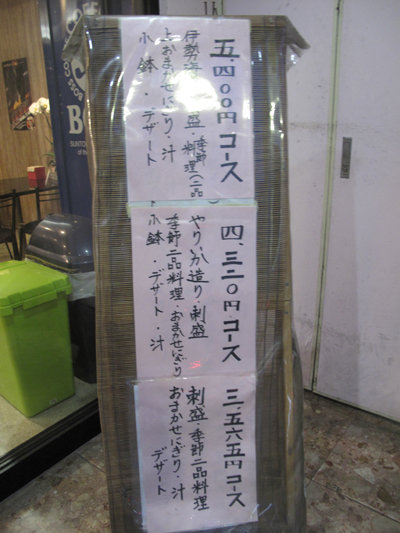 五、四〇〇円コース
伊勢海 盛・季節一品
料理
上おまかせにぎり・汁
小鉢・デザート
四、三二〇円コース
やりいか造り・刺盛
季節一品料理・おまかせにぎり
小鉢・デザート・汁
三、五六五円コース
刺盛・季節一品料理
おまかせにぎり・汁
デザート
SUNTORY